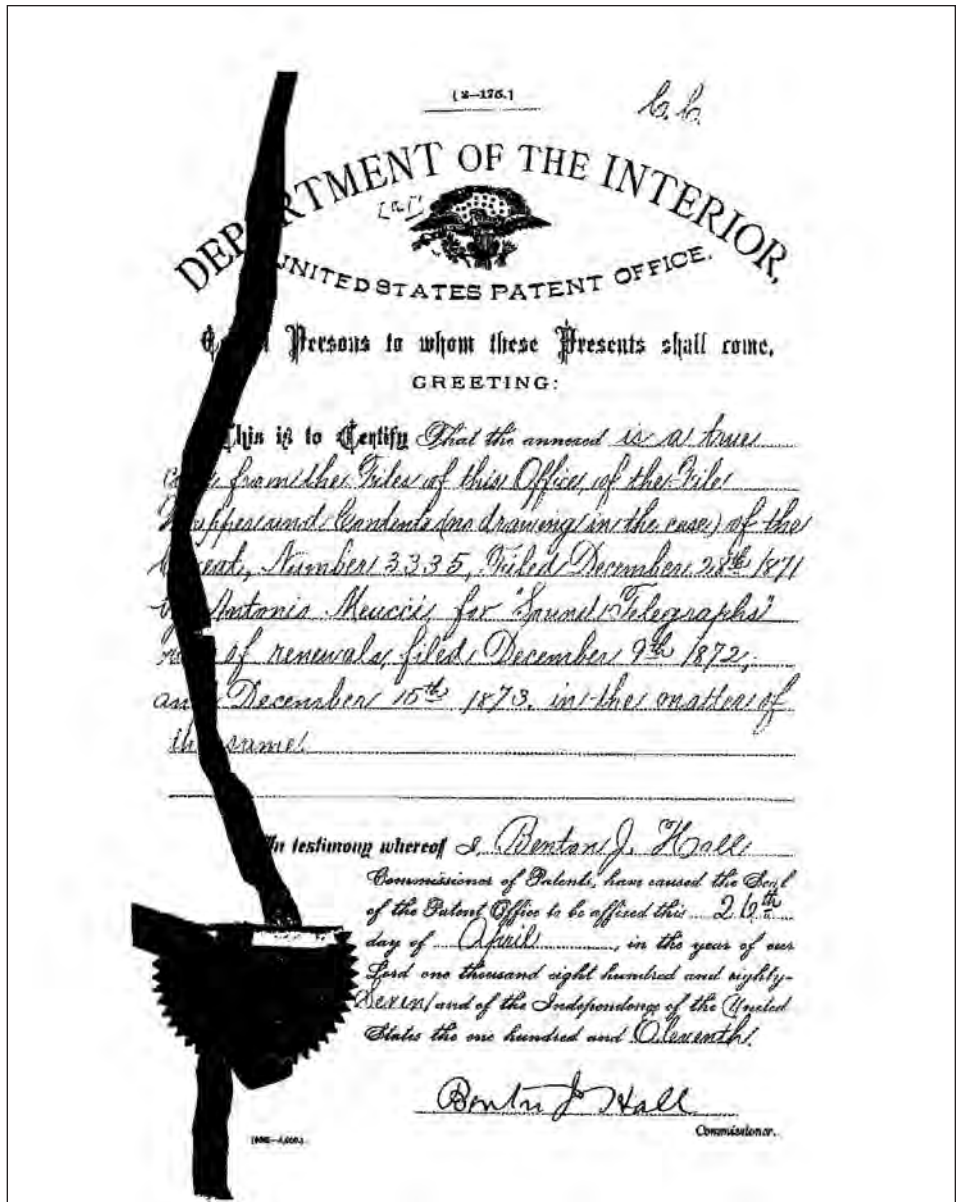 [2—175.]
DEPARTMENT OF THE INTERIOR,
UNITED STATES PATENT OFFICE.
Persons to whom these Presents shall come,
GREETING:
This is to Certify That the annexed is a true
from the Files of this Office, of the File
and Contents (no drawing in the case) of the
Number 3335, Filed December 28th 1871
Antonio Meucci, for "Sound Telegraphs"
of renewals, filed December 9th 1872,
and December 15th 1873. in the matter of
the same.
In testimony whereof I, Benton J. Hall
Commissioner of Patents, have caused the Seal
of the Patent Office to be affixed this
day of April, in the year of our
Lord one thousand eight hundred and eighty-
Seven, and of the Independence of the United
States the one hundred and Eleventh.
Benton J Hall
Commissioner.